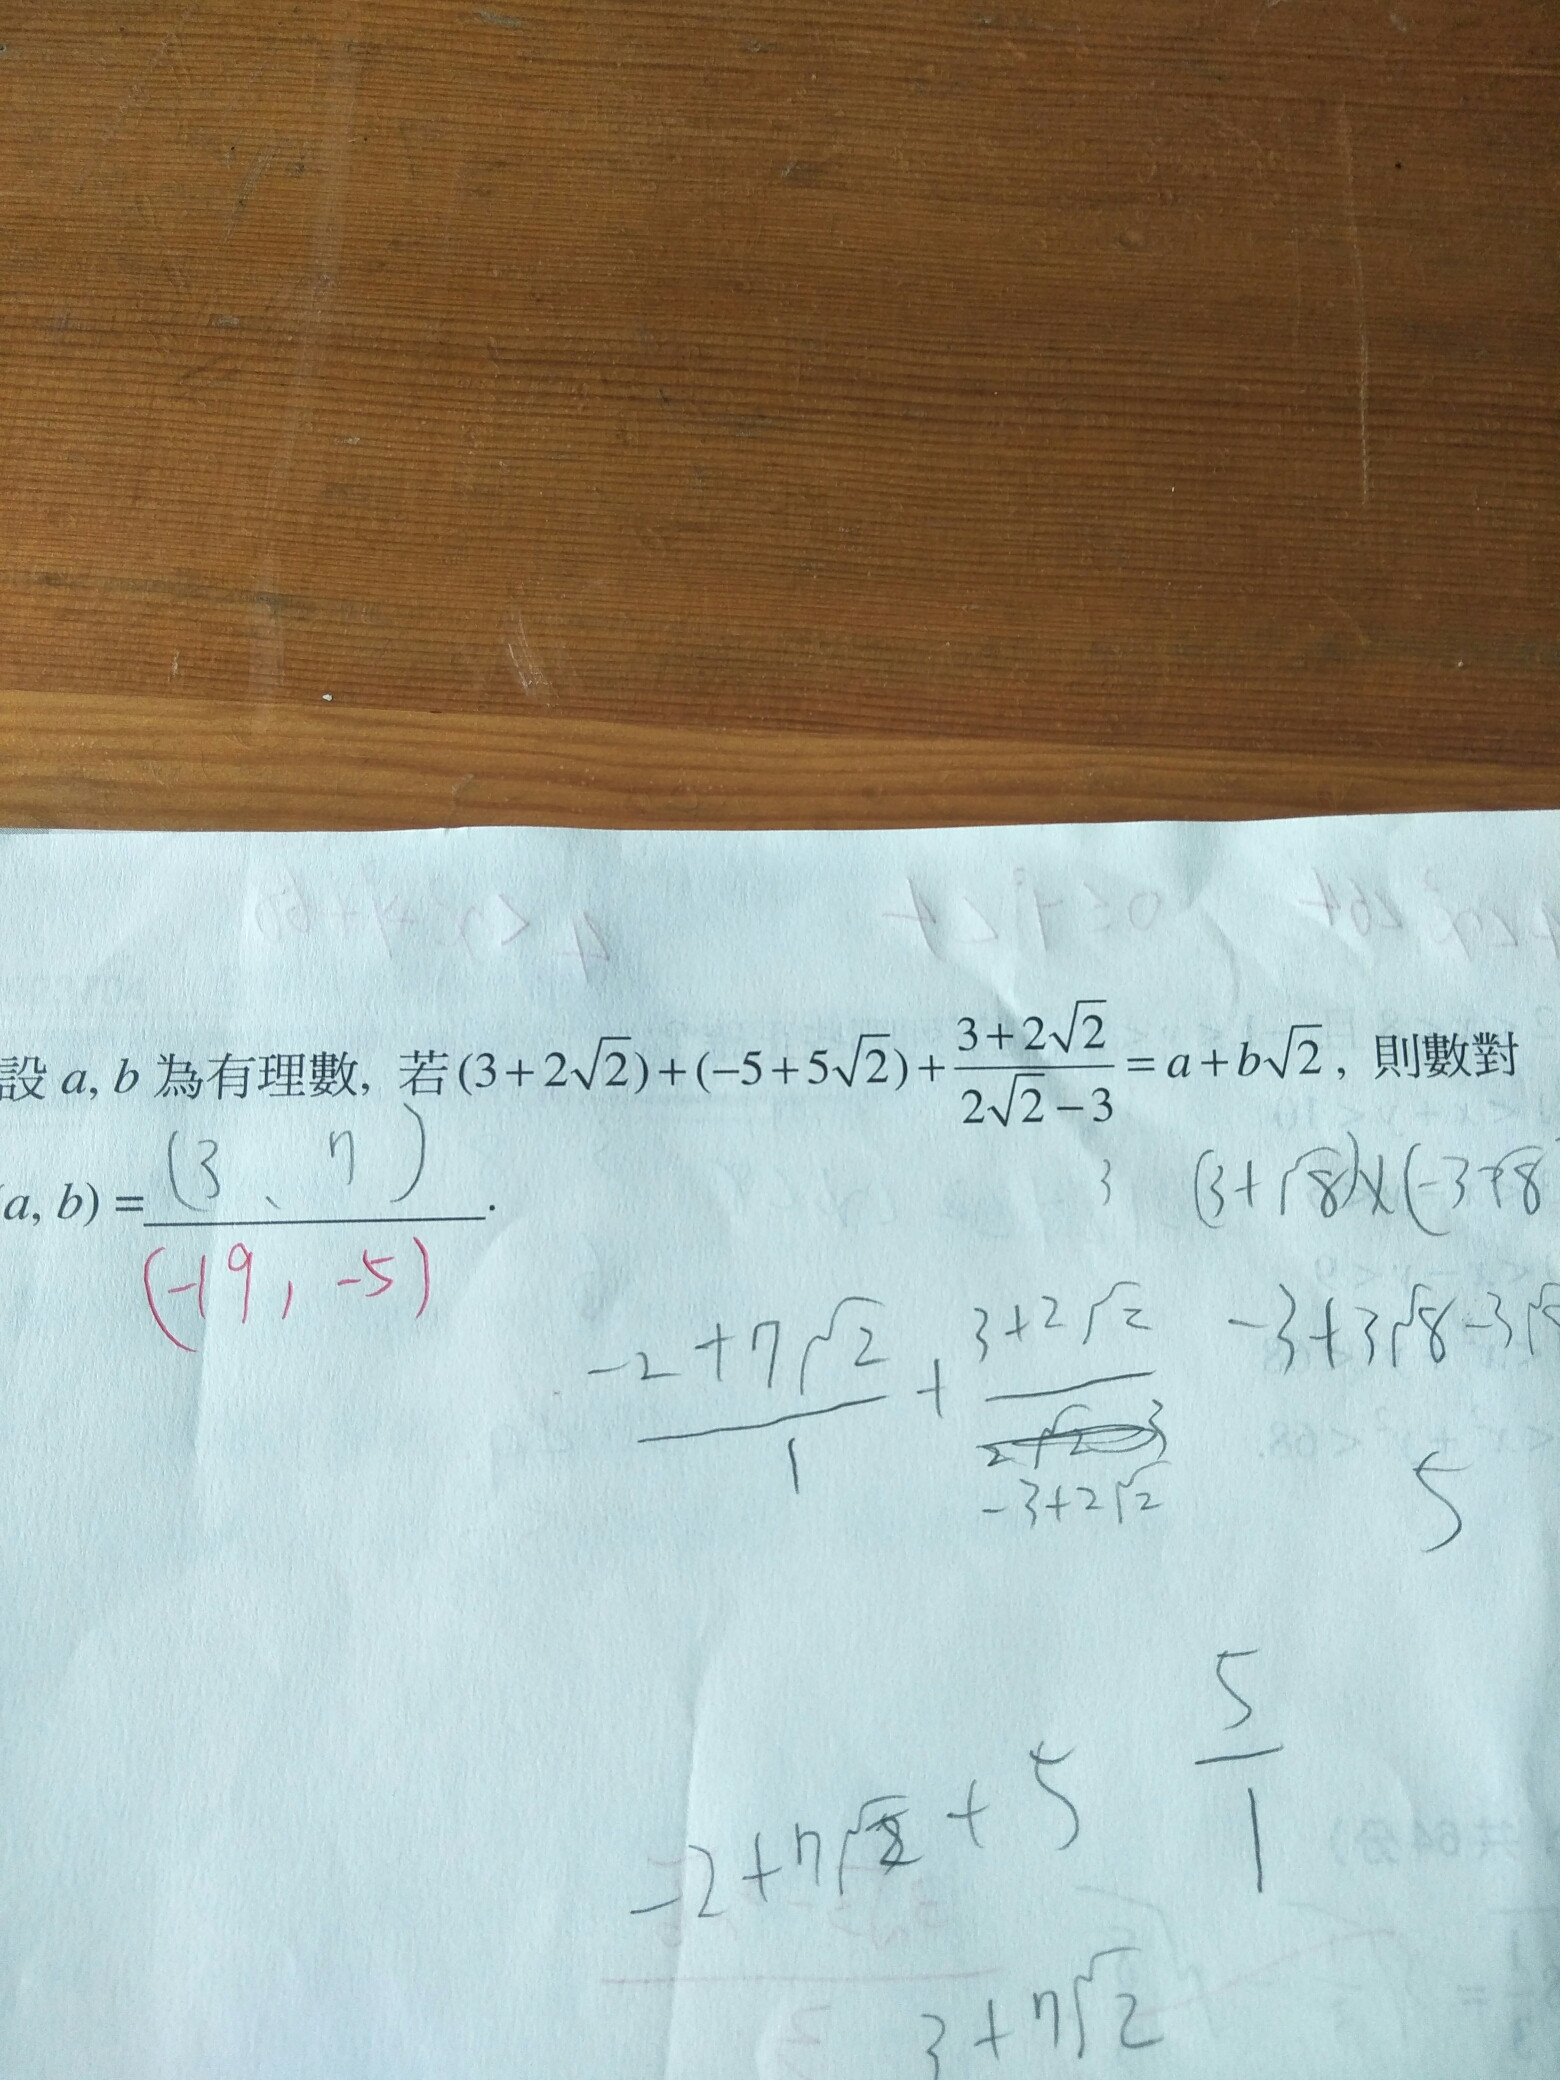 設 a, b 為有理數, 若 (3+2√2)+(−5+5√2)+\frac{3+2√2}{2√2−3}=a+b√2, 則數對
a, b) = (3、7).
(-19, -5)
3 (3+√8)×(-3+√8
\frac{-2+7√2}{1} + \frac{3+2√2}{-3+2√2}
-3+3√8-3√8
5
\frac{5}{1}
-2+7√2+5
3+7√2